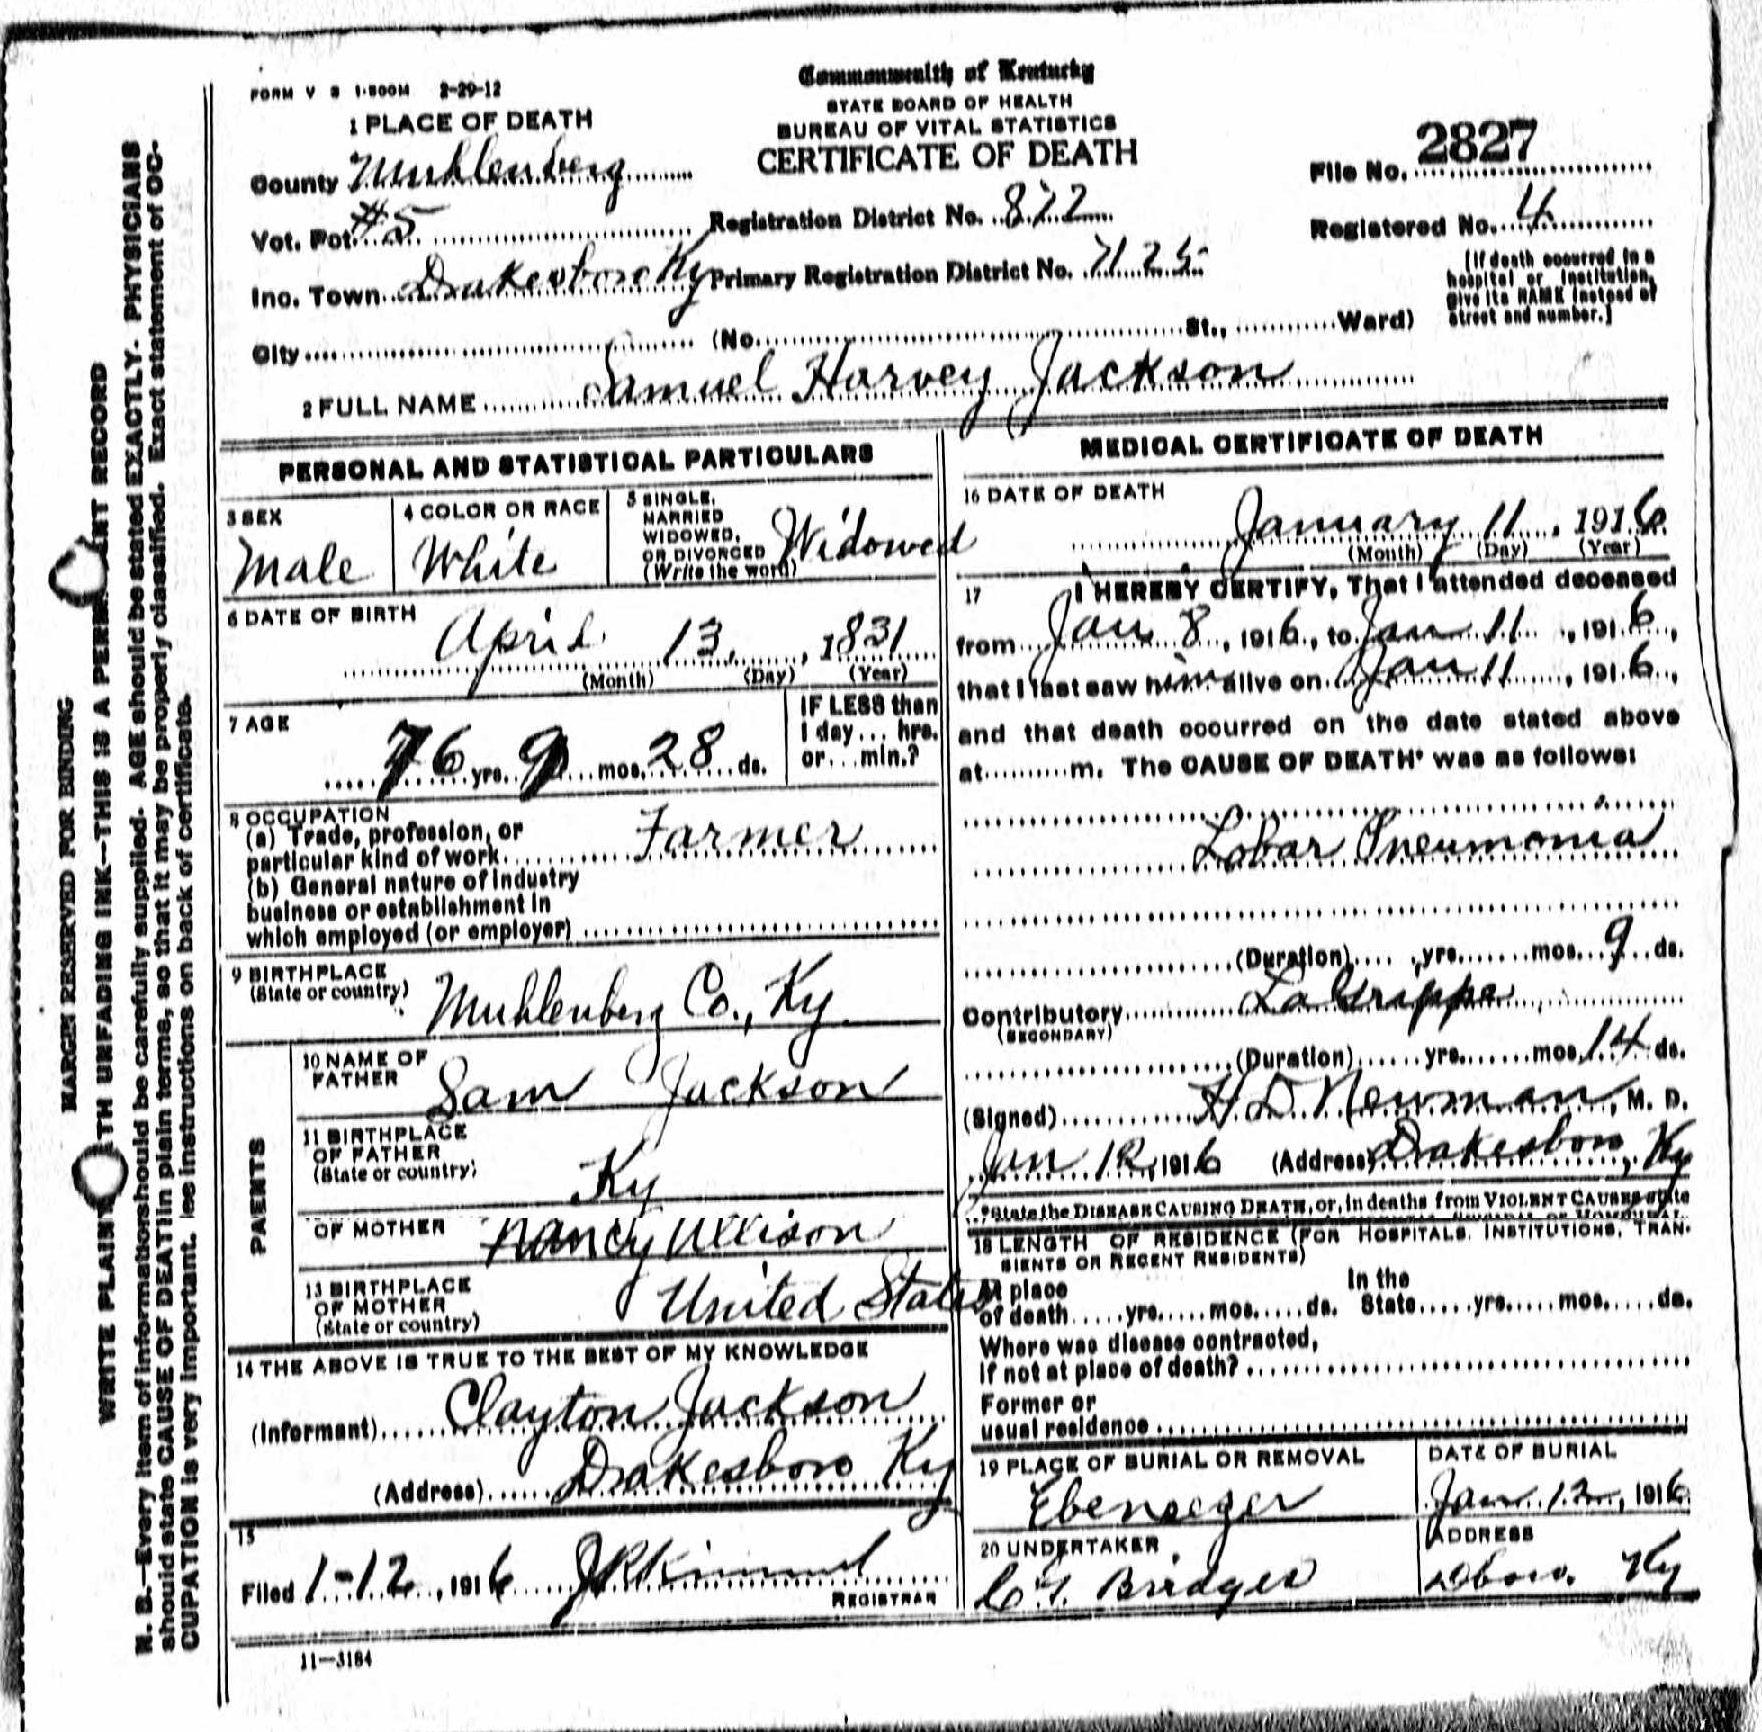 FORM V S 1-500M 2-29-12
Commonwealth of Kentucky
STATE BOARD OF HEALTH
BUREAU OF VITAL STATISTICS
CERTIFICATE OF DEATH
1 PLACE OF DEATH
County Muhlenberg
File No. 2827
Vot. Pct. #5
Registration District No. 872
Registered No. 4
Inc. Town Drakesboro Ky
Primary Registration District No. 7125
City (No. St., Ward)
[If death occurred in a
hospital or institution,
give its NAME instead of
street and number.]
2 FULL NAME Samuel Harvey Jackson
PERSONAL AND STATISTICAL PARTICULARS
3 SEX
Male
4 COLOR OR RACE
White
5 SINGLE,
MARRIED
WIDOWED,
OR DIVORCED
(Write the word)
Widowed
6 DATE OF BIRTH
April 13, 1831
(Month) (Day) (Year)
7 AGE
76 yrs. 9 mos. 28 ds.
IF LESS than
1 day... hrs.
or... min.?
8 OCCUPATION
(a) Trade, profession, or
particular kind of work Farmer
(b) General nature of industry
business or establishment in
which employed (or employer)
9 BIRTHPLACE
(State or country)
Muhlenberg Co., Ky
PAENTS
10 NAME OF
FATHER
Sam Jackson
11 BIRTHPLACE
OF FATHER
(State or country)
Ky
OF MOTHER Nancy Allison
13 BIRTHPLACE
OF MOTHER
(State or country)
United States
14 THE ABOVE IS TRUE TO THE BEST OF MY KNOWLEDGE
(Informant) Clayton Jackson
(Address) Drakesboro Ky
15
Filed 1-12, 1916 J R Kimmel
REGISTRAR
11—3184
MEDICAL CERTIFICATE OF DEATH
16 DATE OF DEATH
January 11, 1916
(Month) (Day) (Year)
17 I HEREBY CERTIFY, That I attended deceased
from Jan 8, 1916, to Jan 11, 1916,
that I last saw him alive on Jan 11, 1916,
and that death occurred on the date stated above
at m. The CAUSE OF DEATH* was as follows:
Lobar Pneumonia
(Duration) yrs. mos. 9 ds.
Contributory La Grippe
(SECONDARY)
(Duration) yrs. mos. 14 ds.
(Signed) H. D. Newman, M. D.
Jan 12, 1916 (Address) Drakesboro, Ky
*State the DISEASE CAUSING DEATH, or, in deaths from VIOLENT CAUSES state
18 LENGTH OF RESIDENCE (FOR HOSPITALS, INSTITUTIONS, TRAN-
SIENTS OR RECENT RESIDENTS)
At place
of death yrs. mos. ds.
In the
State yrs. mos. ds.
Where was disease contracted,
if not at place of death?
Former or
usual residence
19 PLACE OF BURIAL OR REMOVAL
Ebenezer
DATE OF BURIAL
Jan. 12, 1916
20 UNDERTAKER
Bridges
ADDRESS
Dboro. Ky
MARGIN RESERVED FOR BINDING
WRITE PLAIN TH UNFADING INK—THIS IS A PERM ENT RECORD
N. B.—Every item of information should be carefully supplied. AGE should be stated EXACTLY. PHYSICIANS
should state CAUSE OF DEATH in plain terms, so that it may be properly classified. Exact statement of OC-
CUPATION is very important. See instructions on back of certificate.